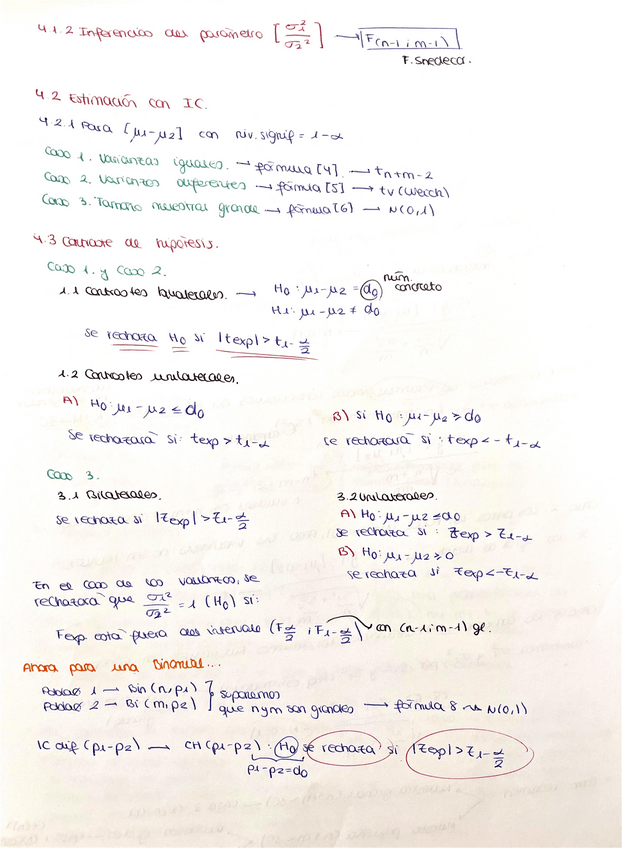 4.1.2 Inferencias del parámetro [σ1²/σ2²] → F(n-1; m-1)
F. Snedecor.
4.2 Estimación con IC.
4.2.1 Para [μ1-μ2] con niv. signif = 1-α
Caso 1. Varianzas iguales. → fórmula [4]. → tn+m-2
Caso 2. Varianzas diferentes → fórmula [5] → tv (Welch)
Caso 3. Tamaño muestral grande → fórmula [6] → N(0,1)
4.3 Contraste de hipótesis.
Caso 1. y Caso 2.
1.1 Contrastes bilaterales. → H0: μ1-μ2 = d0 núm. concreto
H1: μ1-μ2 ≠ d0
se rechaza H0 si |texp| > t1-α/2
1.2 Contrastes unilaterales.
A) H0: μ1-μ2 ≤ d0
se rechazará si: texp > t1-α
B) Si H0: μ1-μ2 ≥ d0
se rechazará si: texp < -t1-α
Caso 3.
3.1 Bilaterales.
se rechaza si |Zexp| > Z1-α/2
3.2 Unilaterales.
A) H0: μ1-μ2 ≤ d0
se rechaza si: Zexp > Z1-α
B) H0: μ1-μ2 ≥ 0
se rechaza si Zexp < -Z1-α
En el caso de las varianzas, se
rechazará que σ1²/σ2² = 1 (H0) si:
Fexp está fuera del intervalo (Fα/2 ; F1-α/2) con (n-1; m-1) gl.
Ahora para una Binomial...
Población 1 → Bin (n, p1)
Población 2 → Bi (m, p2)
suponemos
que n y m son grandes → fórmula 8 ~ N(0,1)
IC dif (p1-p2) → CH (p1-p2). H0 se rechaza si |Zexp| > Z1-α/2
p1-p2=d0